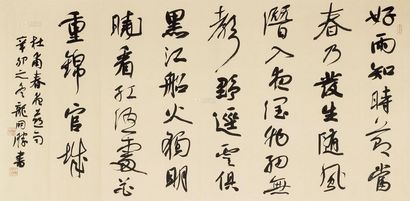 好雨知時節當
春乃發生隨風
潛入夜潤物細無
聲野逕雲俱
黑江船火獨明
曉看紅濕處花
重錦官城
杜甫春夜喜句
辛卯之冬龍開勝書